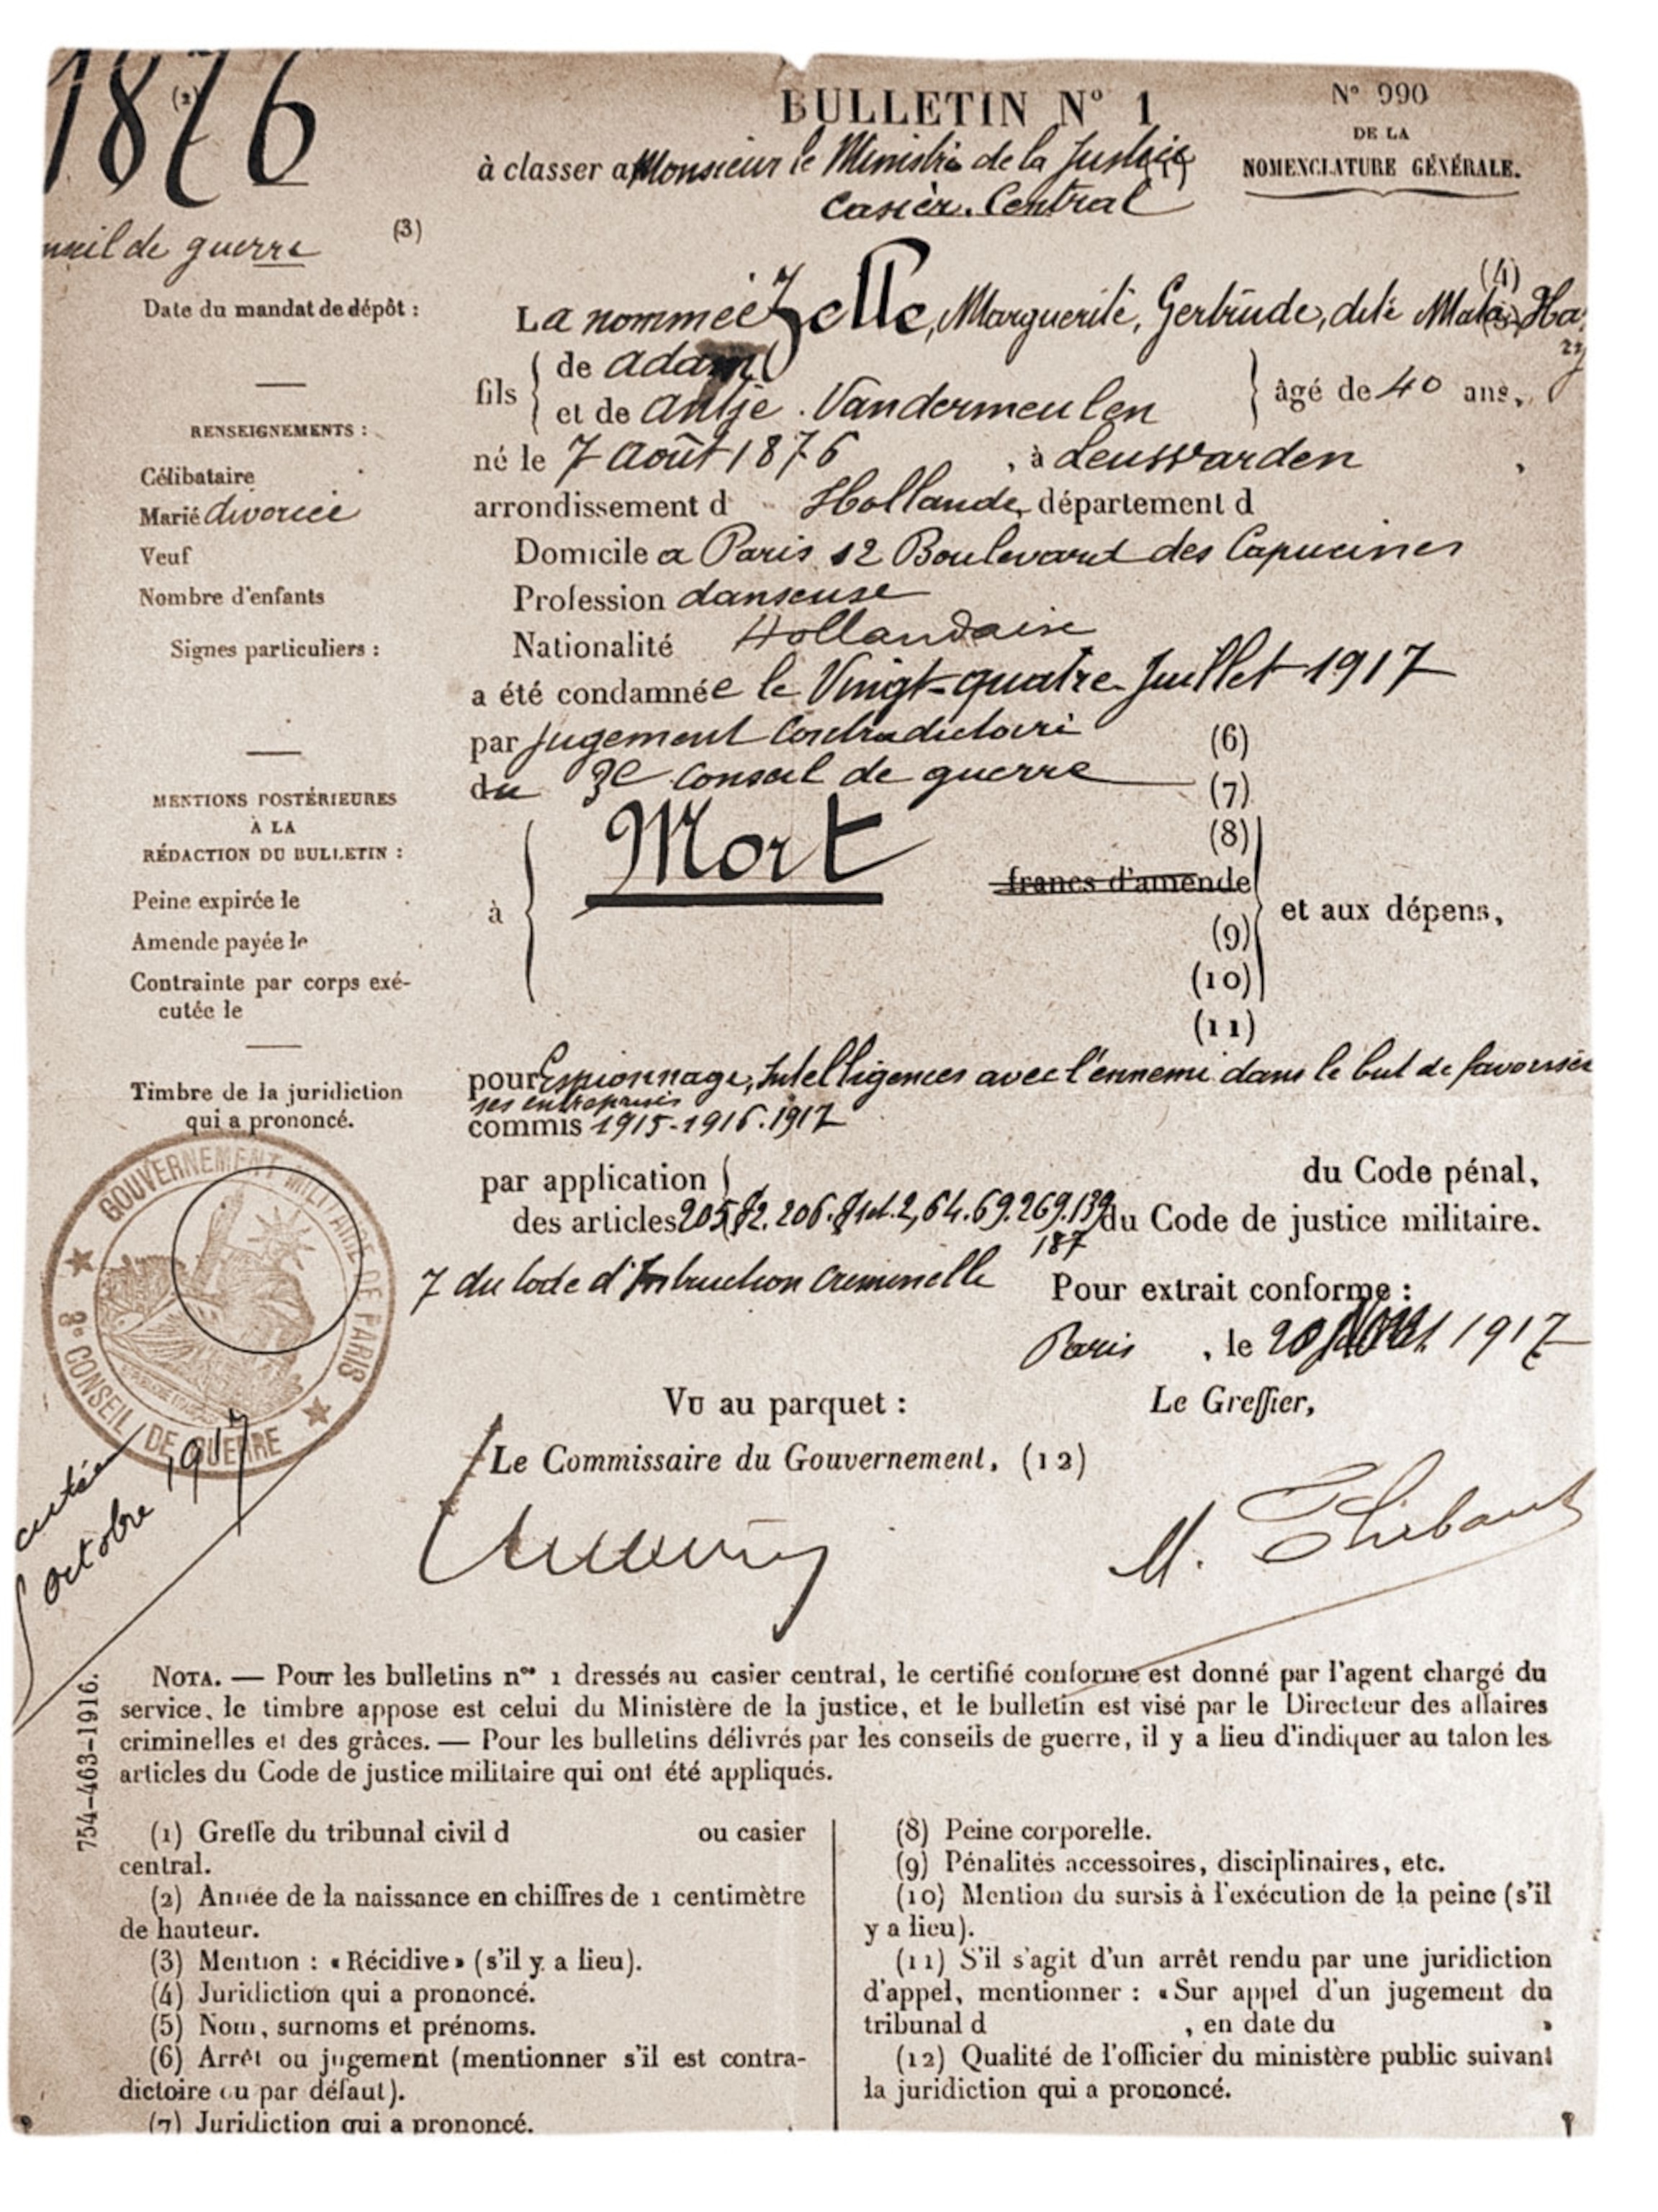 1876
(2)
BULLETIN N° 1
N° 990
DE LA
NOMENCLATURE GÉNÉRALE.
à classer a Monsieur le Ministre de la Justice (1)
Casier Central
(3)
de guerre
Date du mandat de dépôt :
(4)
La nommée Zelle, Marguerite, Gertrude, dite Mata Ha
fils { de adam
et de antje Vandermeulen } âgé de 40 ans,
RENSEIGNEMENTS :
né le 7 Août 1876, à Leuwarden,
Célibataire
Marié divorcée
arrondissement d Hollande, département d
Veuf
Domicile a Paris 12 Boulevard des Capucines
Nombre d'enfants
Profession danseuse
Signes particuliers :
Nationalité Hollandaise
a été condamnée le Vingt-quatre Juillet 1917
par jugement Contradictoire (6)
du 3e Conseil de guerre (7)
MENTIONS POSTÉRIEURES
À LA
RÉDACTION DU BULLETIN :
à { Mort (8)
francs d'amende
Peine expirée le
et aux dépens,
Amende payée le
(9)
Contrainte par corps exé-
cutée le
(10)
(11)
pour Espionnage, Intelligences avec l'ennemi dans le but de favoriser
ses entreprises
commis 1915-1916.1917
Timbre de la juridiction
qui a prononcé.
GOUVERNEMENT MILITAIRE DE PARIS
3e CONSEIL DE GUERRE
par application { du Code pénal,
des articles 205 § 2. 206. § 1 et 2, 64. 69. 269. 139 du Code de justice militaire.
187
7 du Code d'Instruction Criminelle
Pour extrait conforme :
Paris, le 20 1917
Vu au parquet :
Le Greffier,
Le Commissaire du Gouvernement, (12)
M. Thibaut
octobre 1917
NOTA. — Pour les bulletins nos 1 dressés au casier central, le certifié conforme est donné par l'agent chargé du
service, le timbre appose est celui du Ministère de la justice, et le bulletin est visé par le Directeur des affaires
criminelles et des grâces. — Pour les bulletins délivrés par les conseils de guerre, il y a lieu d'indiquer au talon les
articles du Code de justice militaire qui ont été appliqués.
754-463-1916.
(1) Greffe du tribunal civil d ou casier
central.
(2) Année de la naissance en chiffres de 1 centimètre
de hauteur.
(3) Mention : « Récidive » (s'il y a lieu).
(4) Juridiction qui a prononcé.
(5) Nom, surnoms et prénoms.
(6) Arrêt ou jugement (mentionner s'il est contra-
dictoire ou par défaut).
(7) Juridiction qui a prononcé.
(8) Peine corporelle.
(9) Pénalités accessoires, disciplinaires, etc.
(10) Mention du sursis à l'exécution de la peine (s'il
y a lieu).
(11) S'il s'agit d'un arrêt rendu par une juridiction
d'appel, mentionner : « Sur appel d'un jugement du
tribunal d , en date du »
(12) Qualité de l'officier du ministère public suivant
la juridiction qui a prononcé.